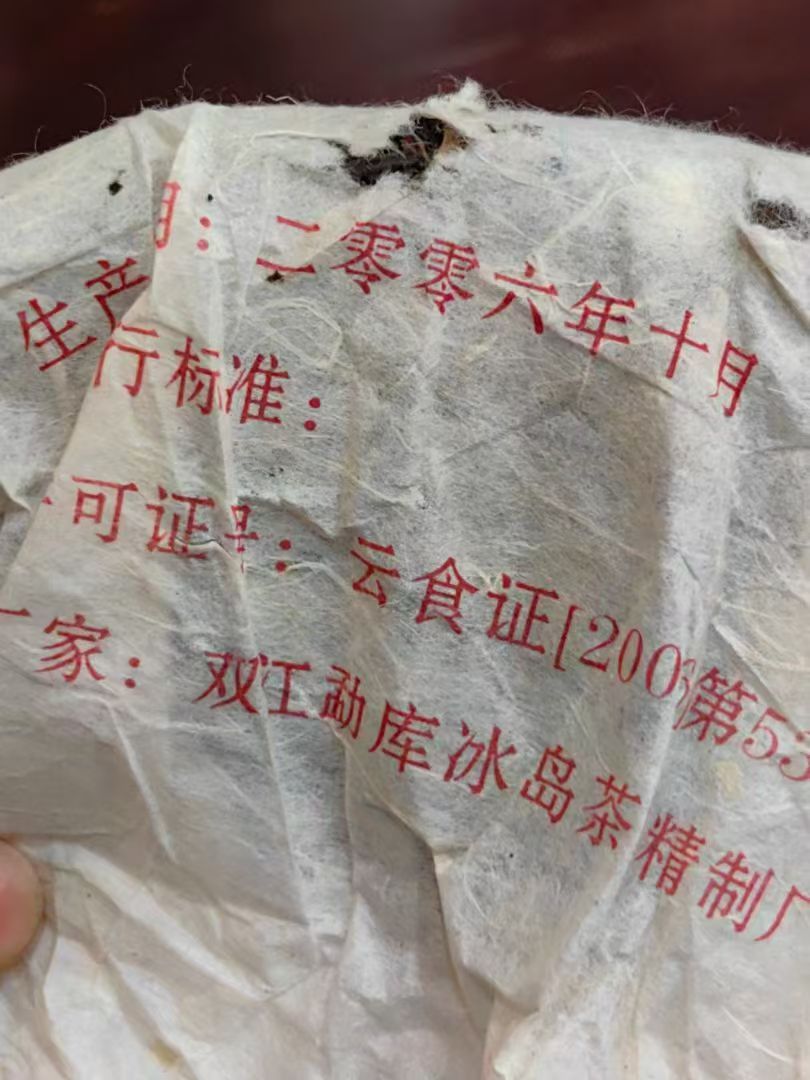 生产 期：二零零六年十月
行标准：
可证号：云食证[200 第53
家：双江勐库冰岛茶精制厂